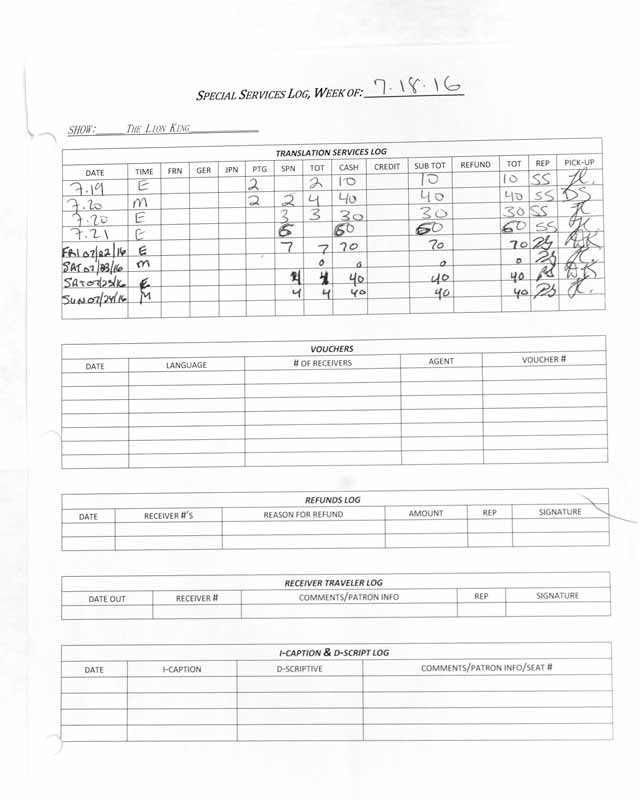 SPECIAL SERVICES LOG, WEEK OF: 7.18.16
SHOW: THE LION KING
TRANSLATION SERVICES LOG
DATE TIME FRN GER JPN PTG SPN TOT CASH CREDIT SUB TOT REFUND TOT REP PICK-UP
7.19 E 2 2 10 10 10 SS
7.20 M 2 2 4 40 40 40 SS DS
7.20 E 3 3 30 30 30 SS
7.21 E 6 60 60 60 SS
FRI 07/22/16 E 7 7 70 70 70
SAT 07/23/16 M 0 0 0 0
SAT 07/23/16 E 4 4 40 40 40
SUN 07/24/16 M 4 4 40 40 40
VOUCHERS
DATE LANGUAGE # OF RECEIVERS AGENT VOUCHER #
REFUNDS LOG
DATE RECEIVER #'S REASON FOR REFUND AMOUNT REP SIGNATURE
RECEIVER TRAVELER LOG
DATE OUT RECEIVER # COMMENTS/PATRON INFO REP SIGNATURE
I-CAPTION & D-SCRIPT LOG
DATE I-CAPTION D-SCRIPTIVE COMMENTS/PATRON INFO/SEAT #